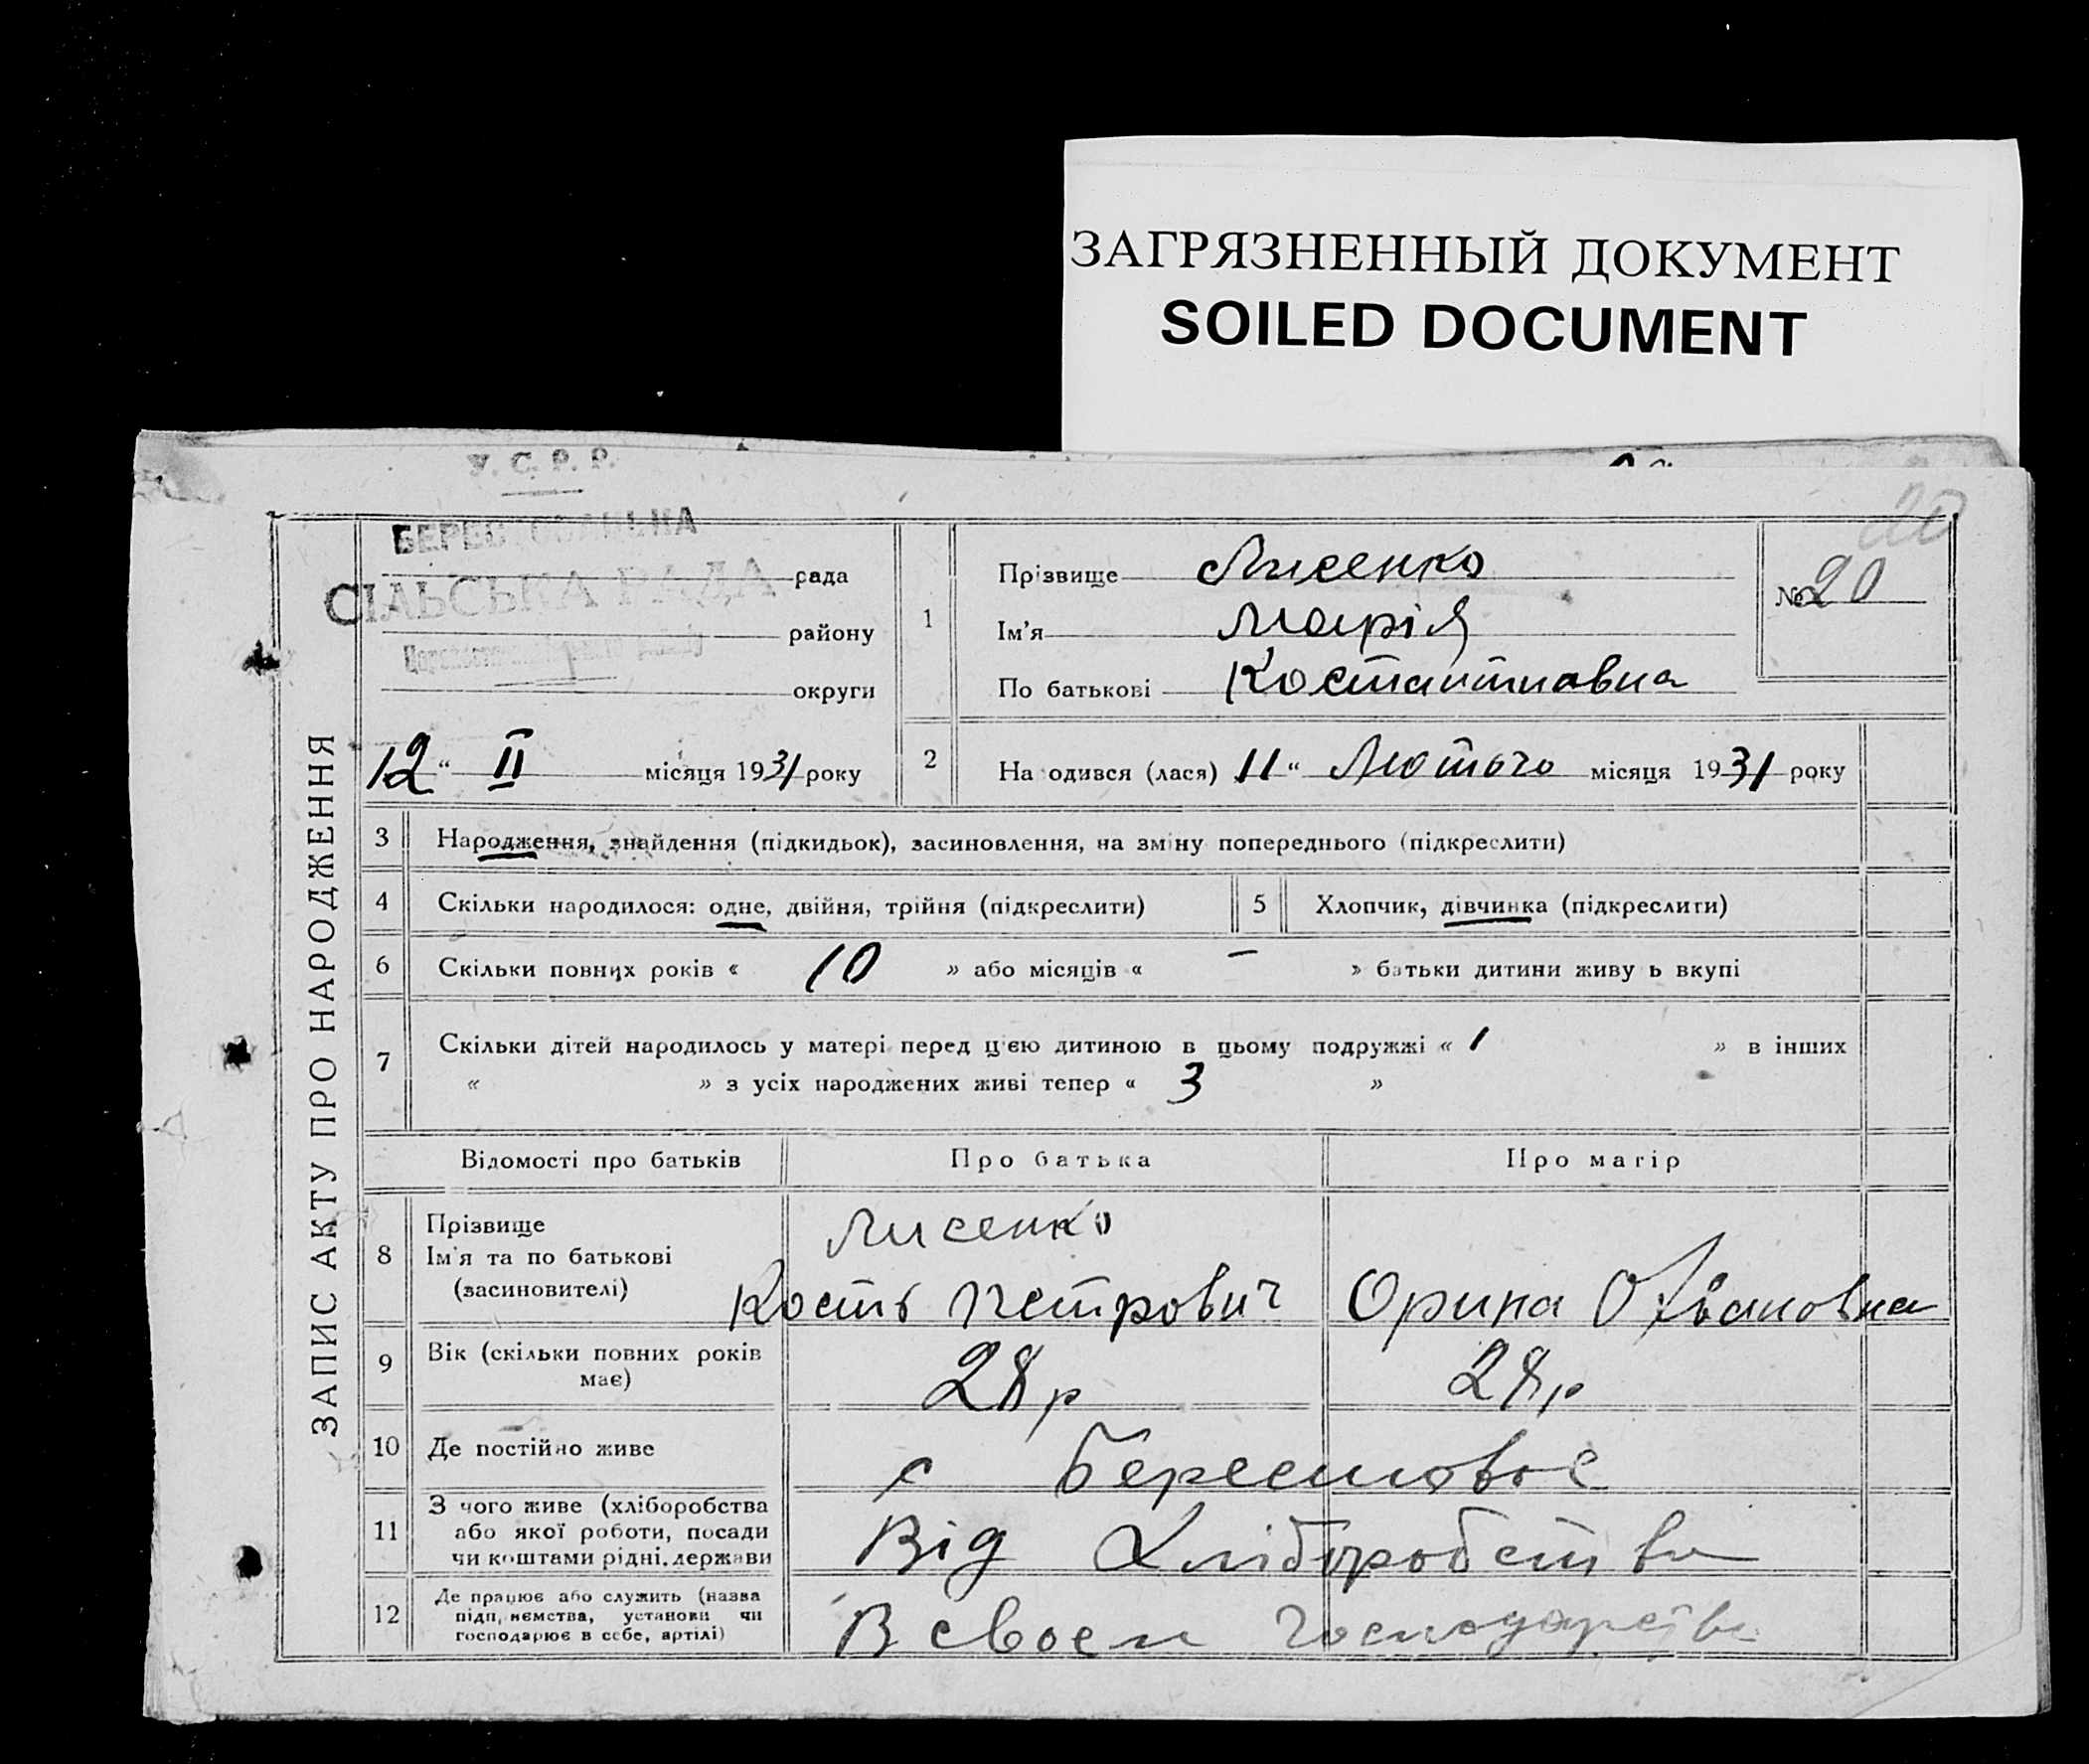 ЗАГРЯЗНЕННЫЙ ДОКУМЕНТ
SOILED DOCUMENT
У. С. Р. Р.
20
СІЛЬСЬКА РАДА
рада
району
округи
12 " II місяця 1931 року
1
Прізвище Лисенко
Ім'я Марія
По батькові Костантиновна
№ 20
2
На одився (лася) 11 " Лютого місяця 1931 року
ЗАПИС АКТУ ПРО НАРОДЖЕННЯ
3 Народження, знайдення (підкидьок), засиновлення, на зміну попереднього (підкреслити)
4 Скільки народилося: одне, двійня, трійня (підкреслити)
5 Хлопчик, дівчинка (підкреслити)
6 Скільки повних років « 10 » або місяців « – » батьки дитини живу ь вкупі
7 Скільки дітей народилось у матері перед цією дитиною в цьому подружжі « 1 » в інших
« » з усіх народжених живі тепер « 3 »
Відомості про батьків Про батька Про матір
8 Прізвище
Ім'я та по батькові
(засиновителі)
Лисенко
Кость Петрович Орина
9 Вік (скільки повних років
має)
28 р 28 р
10 Де постійно живе
с Берестовое
11 З чого живе (хліборобства
або якої роботи, посади
чи коштами рідні, держави
Від Хліборобства
12 Де працює або служить (назва
підприємства, установи чи
господарює в себе, артілі)
В своем господарстві